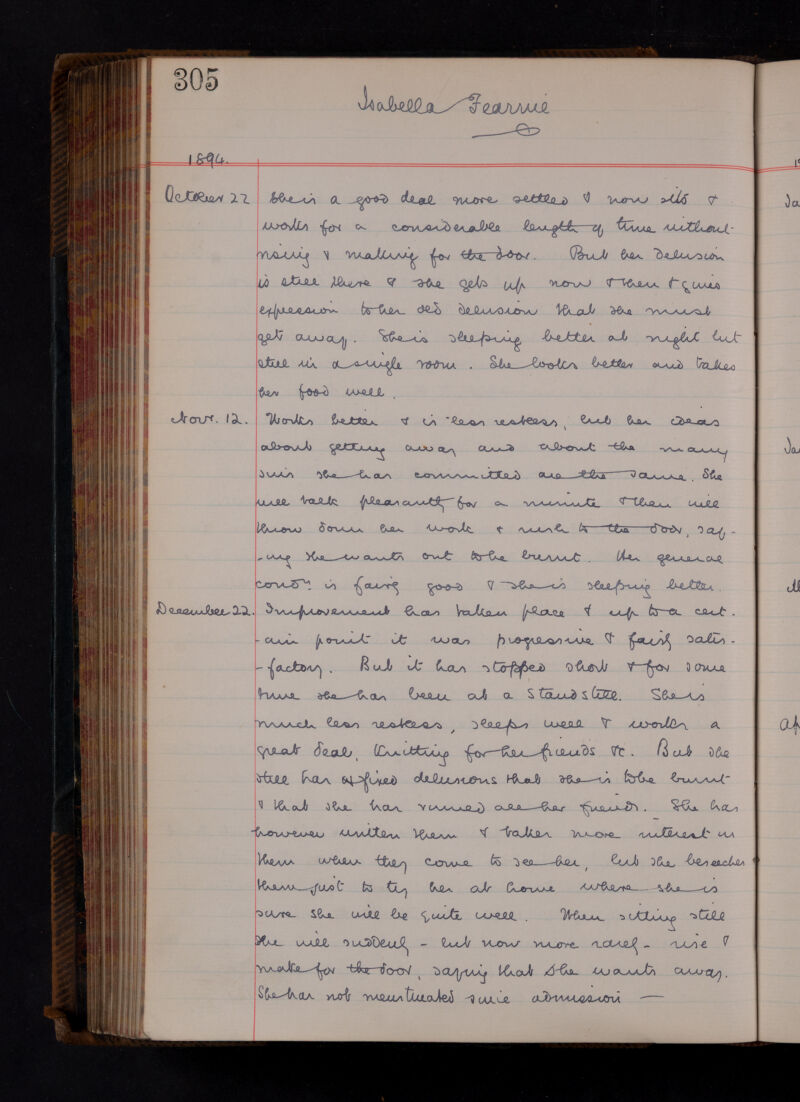 305
Isabella Fearnie
1894.
October 22 She is a good deal more settled & now sits &
works for a considerable length of time without
rising & making for the door. But her delusion
is still there & she gets up now & then & gives
expression to her old delusion that she must
get away. She is sleeping better at night but
still in a single room. She looks better and takes
her food well.
Novr. 12. Works better & is less restless, but her ideas
about getting away and about the many
sins she has committed are the same. She
will talk pleasantly for a minute & then will
throw down her work & rush to the door, say-
-ing she wants out to be burnt. Her general
condn is fairly good & she is sleeping better.
December 22. Improvement has taken place & up to a cert-
-ain point it was progressive & fairly satis-
-factory. But it has stopped short & for some
time she has been at a standstill. She is
much less restless, sleeps well & works a
great deal, knitting for her friends &c. But she
still has fixed delusions that she is to be burnt
& that she has ruined all her friends. She has
however written them & takes more interest in
them when they come to see her, but she beseeches
them just to try her at home where she is
sure she will be quite well. When sitting still
she will suddenly - but now more rarely - rise &
make for the door, saying that she wants away.
She has not menstruated since admission —